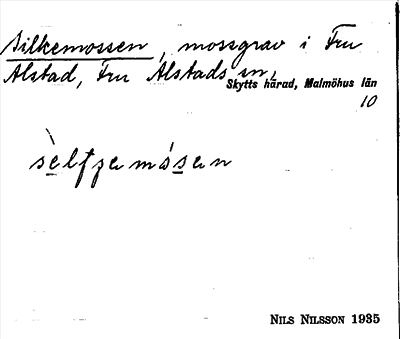 Silkemossen, mossgrav i Fru
Alstad, Fru Alstads sn,
Skytts härad, Malmöhus län
10
NILS NILSSON 1935